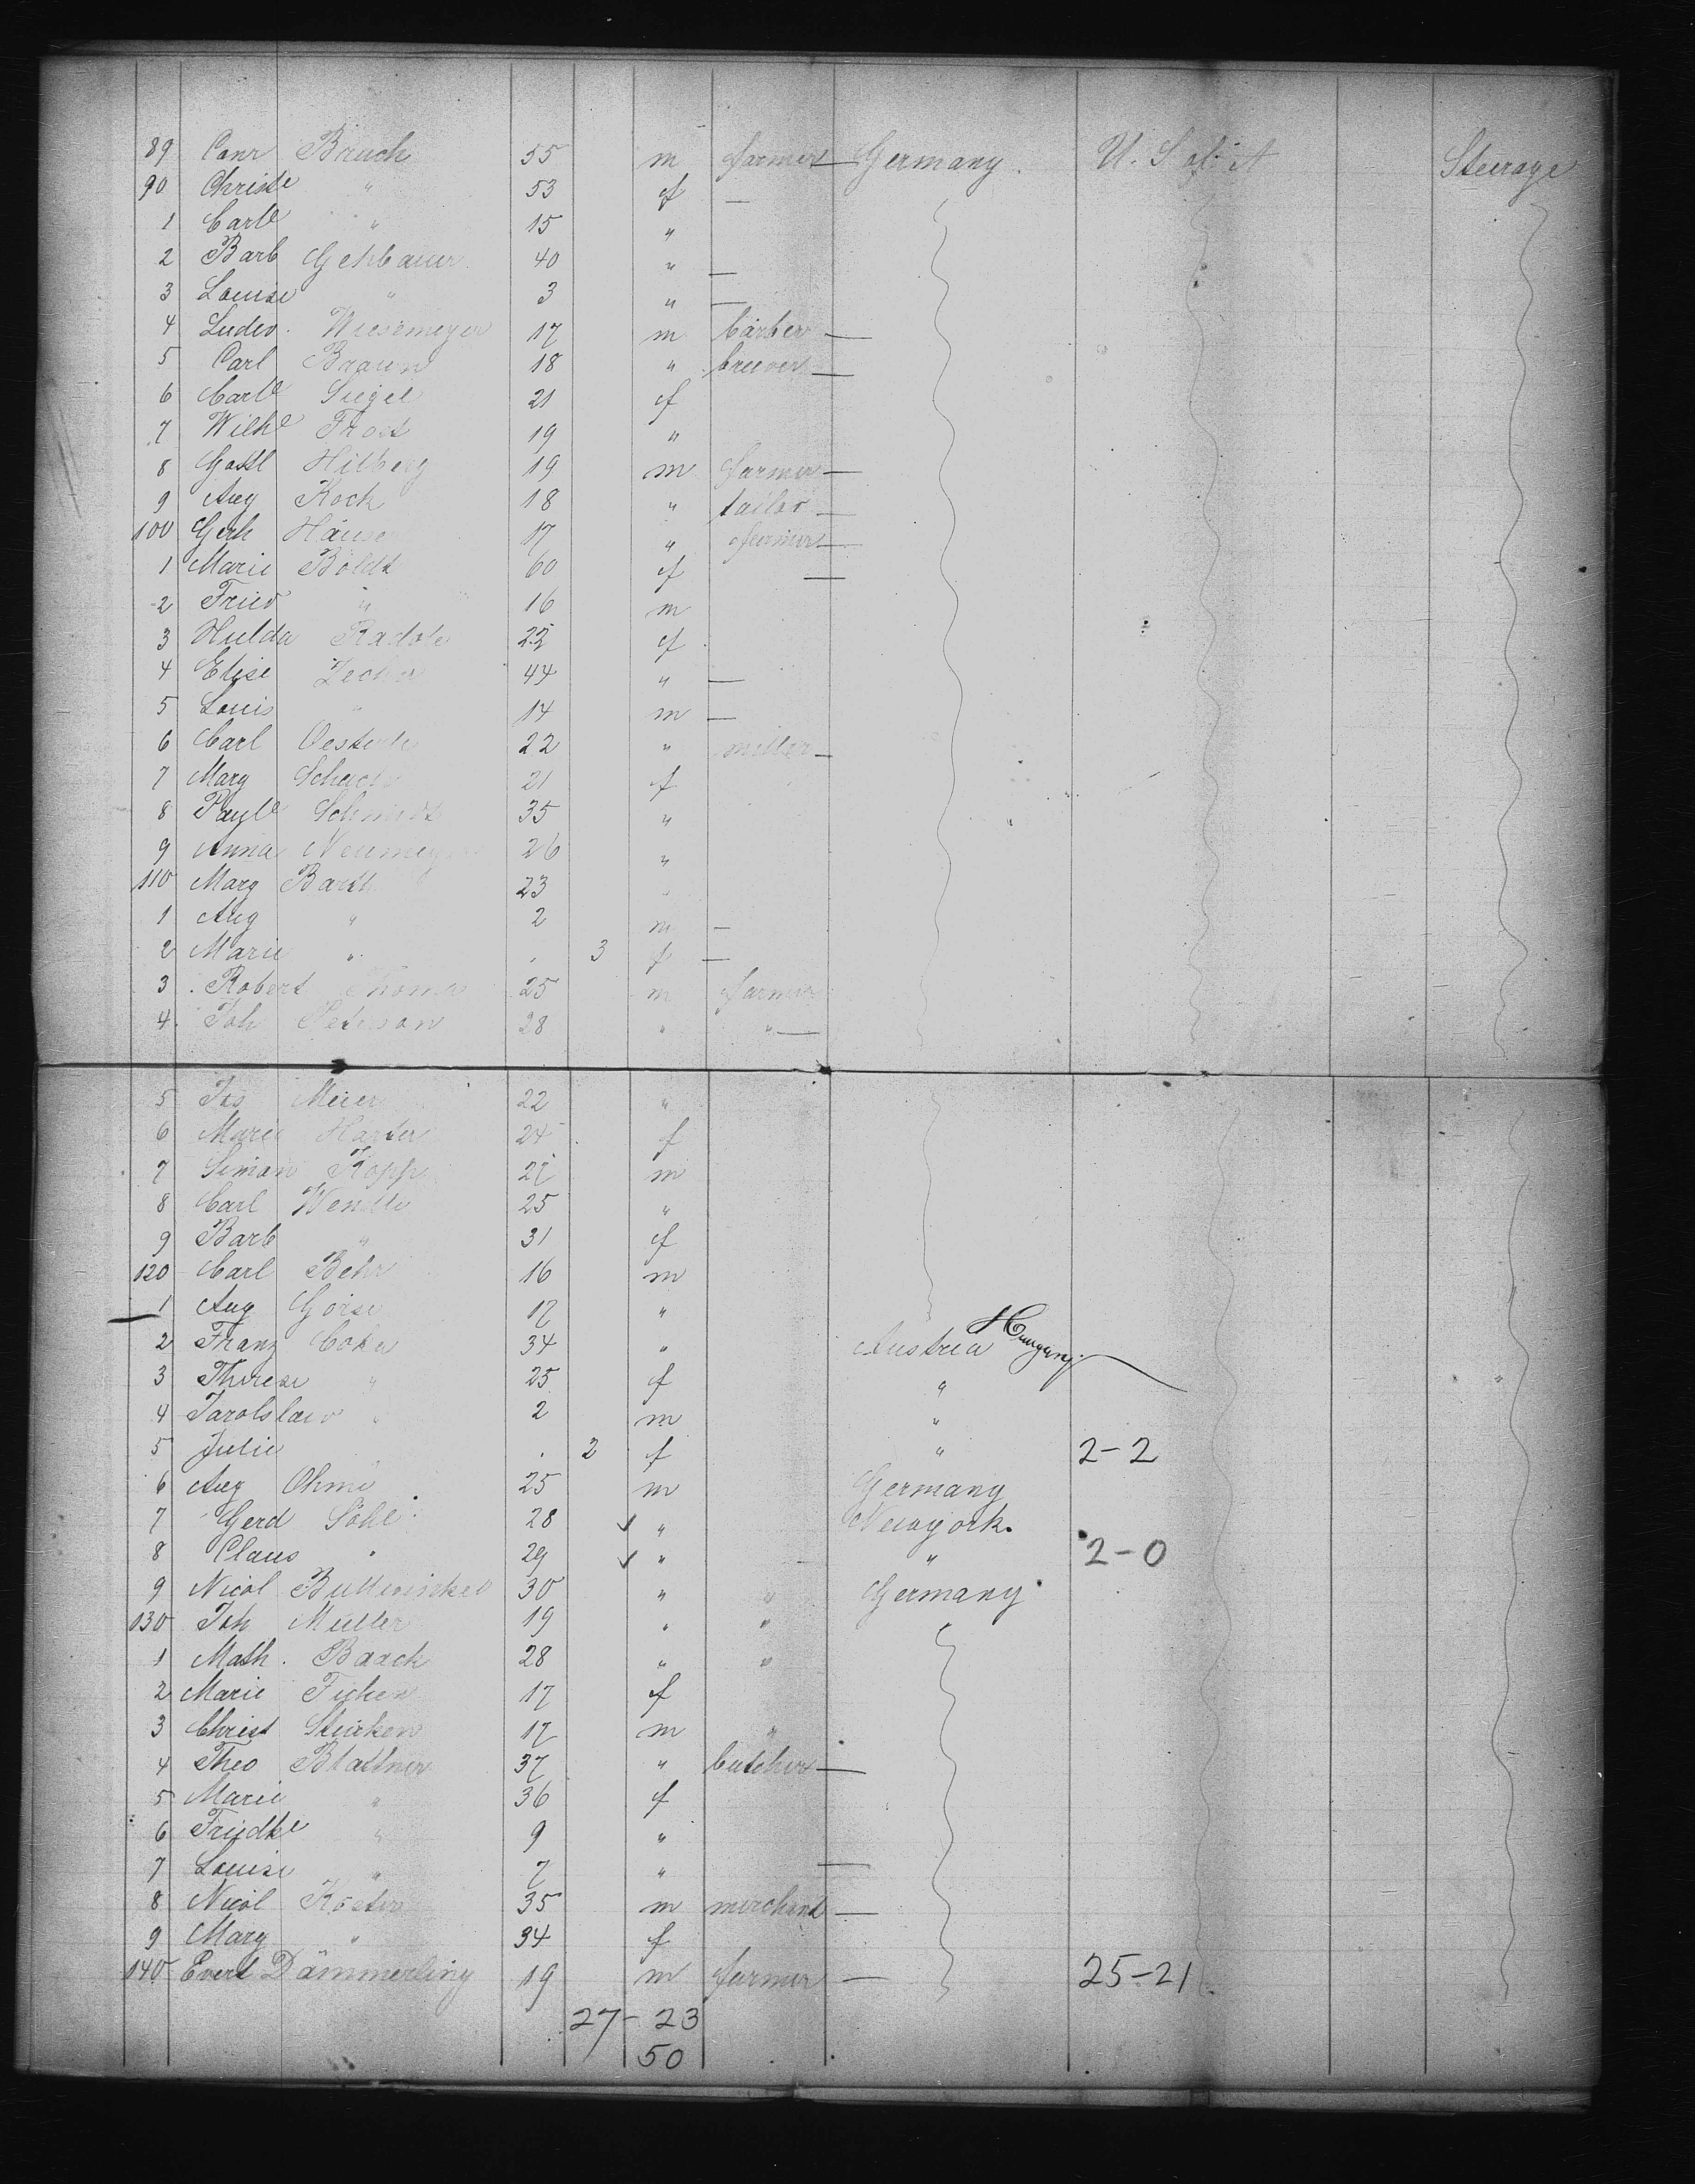 89 Conr Bruch 55 m farmer — Germany. U. S of A Steerage
90 Christe " 53 f —
1 Carle " 15 "
2 Barb Gehbauer 40 " —
3 Louise " 3 " —
4 Ludw. Wiesemeyer 17 m barber —
5 Carl Braun 18 " brewer —
6 Carle Siegel 21 f
7 Wilhe Frost 19 "
8 Gottl Hilberg 19 m farmer —
9 Aug Koch 18 " tailor —
100 Gerh Häuse 17 " farmer —
1 Marie Boldt 60 f —
2 Fried " 16 m
3 Hulda 22 f
4 Elise 44 " —
5 Louis " 14 m —
6 Carl Oesterle 22 " miller —
7 Marg 21 f
8 Paule Schmidt 35 "
9 Anna Neumeyer 26 "
110 Marg Barth 23 "
1 Aug " 2 m —
2 Marie " . 3 f —
3 Robert Thoma 25 m farmer
4 Joh Peterson 28 " " —
5 Jos Meier 22 "
6 Marie Harter 24 f
7 Simon Kopp 27 m
8 Carl 25 "
9 Barb " 31 f
120 Carl Behr 16 m
1 Aug 17 "
2 Franz Coka 34 " Austria Hungary
3 Therese " 25 f " "
4 Jarolslaw " 2 m "
5 Julie . 2 f " 2-2
6 Aug Ohme 25 m Germany
7 Gerd Söhl 28 ✓ " Newyork.
8 Claus " 29 ✓ " " 2-0
9 Nicol Buttwinkel 30 " " Germany
130 Joh Müller 19 " "
1 Math. Baack 28 " "
2 Marie Ficken 17 f
3 Christ Stürken 17 m "
4 Theo Blattner 37 " butcher —
5 Marie " 36 f
6 Friedke " 9 "
7 Louise " 7 " —
8 Nicol Köster 35 m merchant —
9 Marg " 34 f
140 Evert Dämmerling 19 m farmer — 25-21
27-23
50